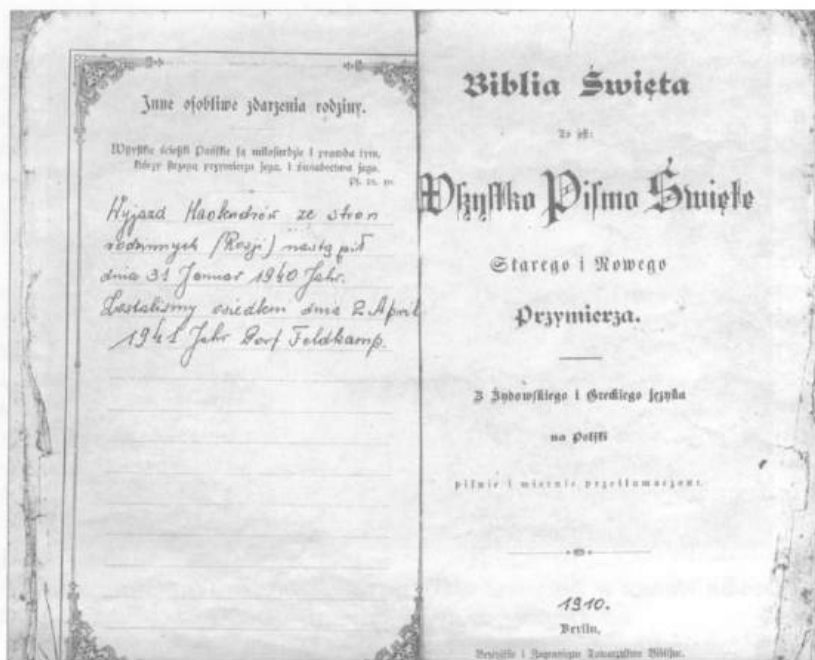 Inne osobliwe zdarzenia rodziny.
Wszystkie ścieżki Pańskie są miłosierdzie i prawda tym,
którzy strzegą przymierza jego, i świadectwa jego.
Ps. 25. 10.
Wyjazd Haolendrów ze stron
rodzinnych (Rosji) nastąpił
dnia 31 Januar 1940 Jahr.
Zostaliśmy osiedlem dnia 2 April
1941 Jahr Dorf Feldkamp.
Biblia Święta
To jest:
Wszystko Pismo Święte
Starego i Nowego
Przymierza.
Z Żydowskiego i Greckiego języka
na Polski
pilnie i wiernie przetłumaczone.
1910.
Berlin,
Brytyjskie i Zagraniczne Towarzystwo Biblijne.